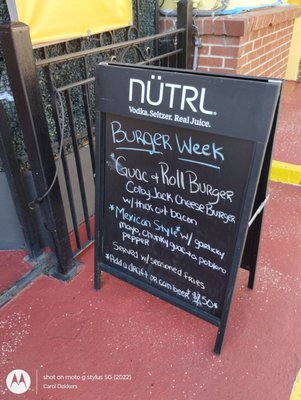 NÜTRL
Vodka. Seltzer. Real Juice.
Burger Week
*Guac + Roll Burger
Colby Jack Cheese Burger
w/ thick cut bacon
*Mexican Style* w/ garlicky
mayo, chunky guac + poblano
pepper
Served w/ seasoned fries
*Add a draft or can beer $2.50*
shot on moto g stylus 5G (2022)
Carol Dekkers